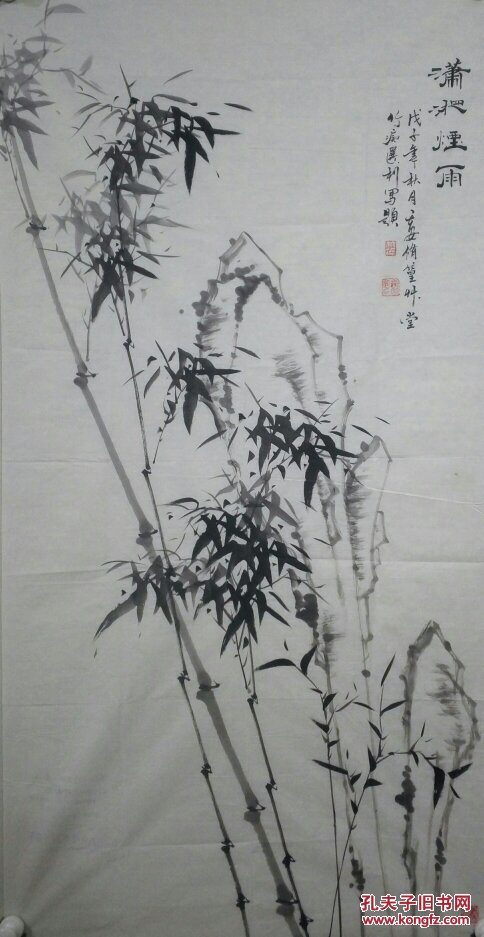 潇湘煙雨
戊子年秋月　修篁艸堂
竹痴　利写題
孔夫子旧书网
www.kongfz.com